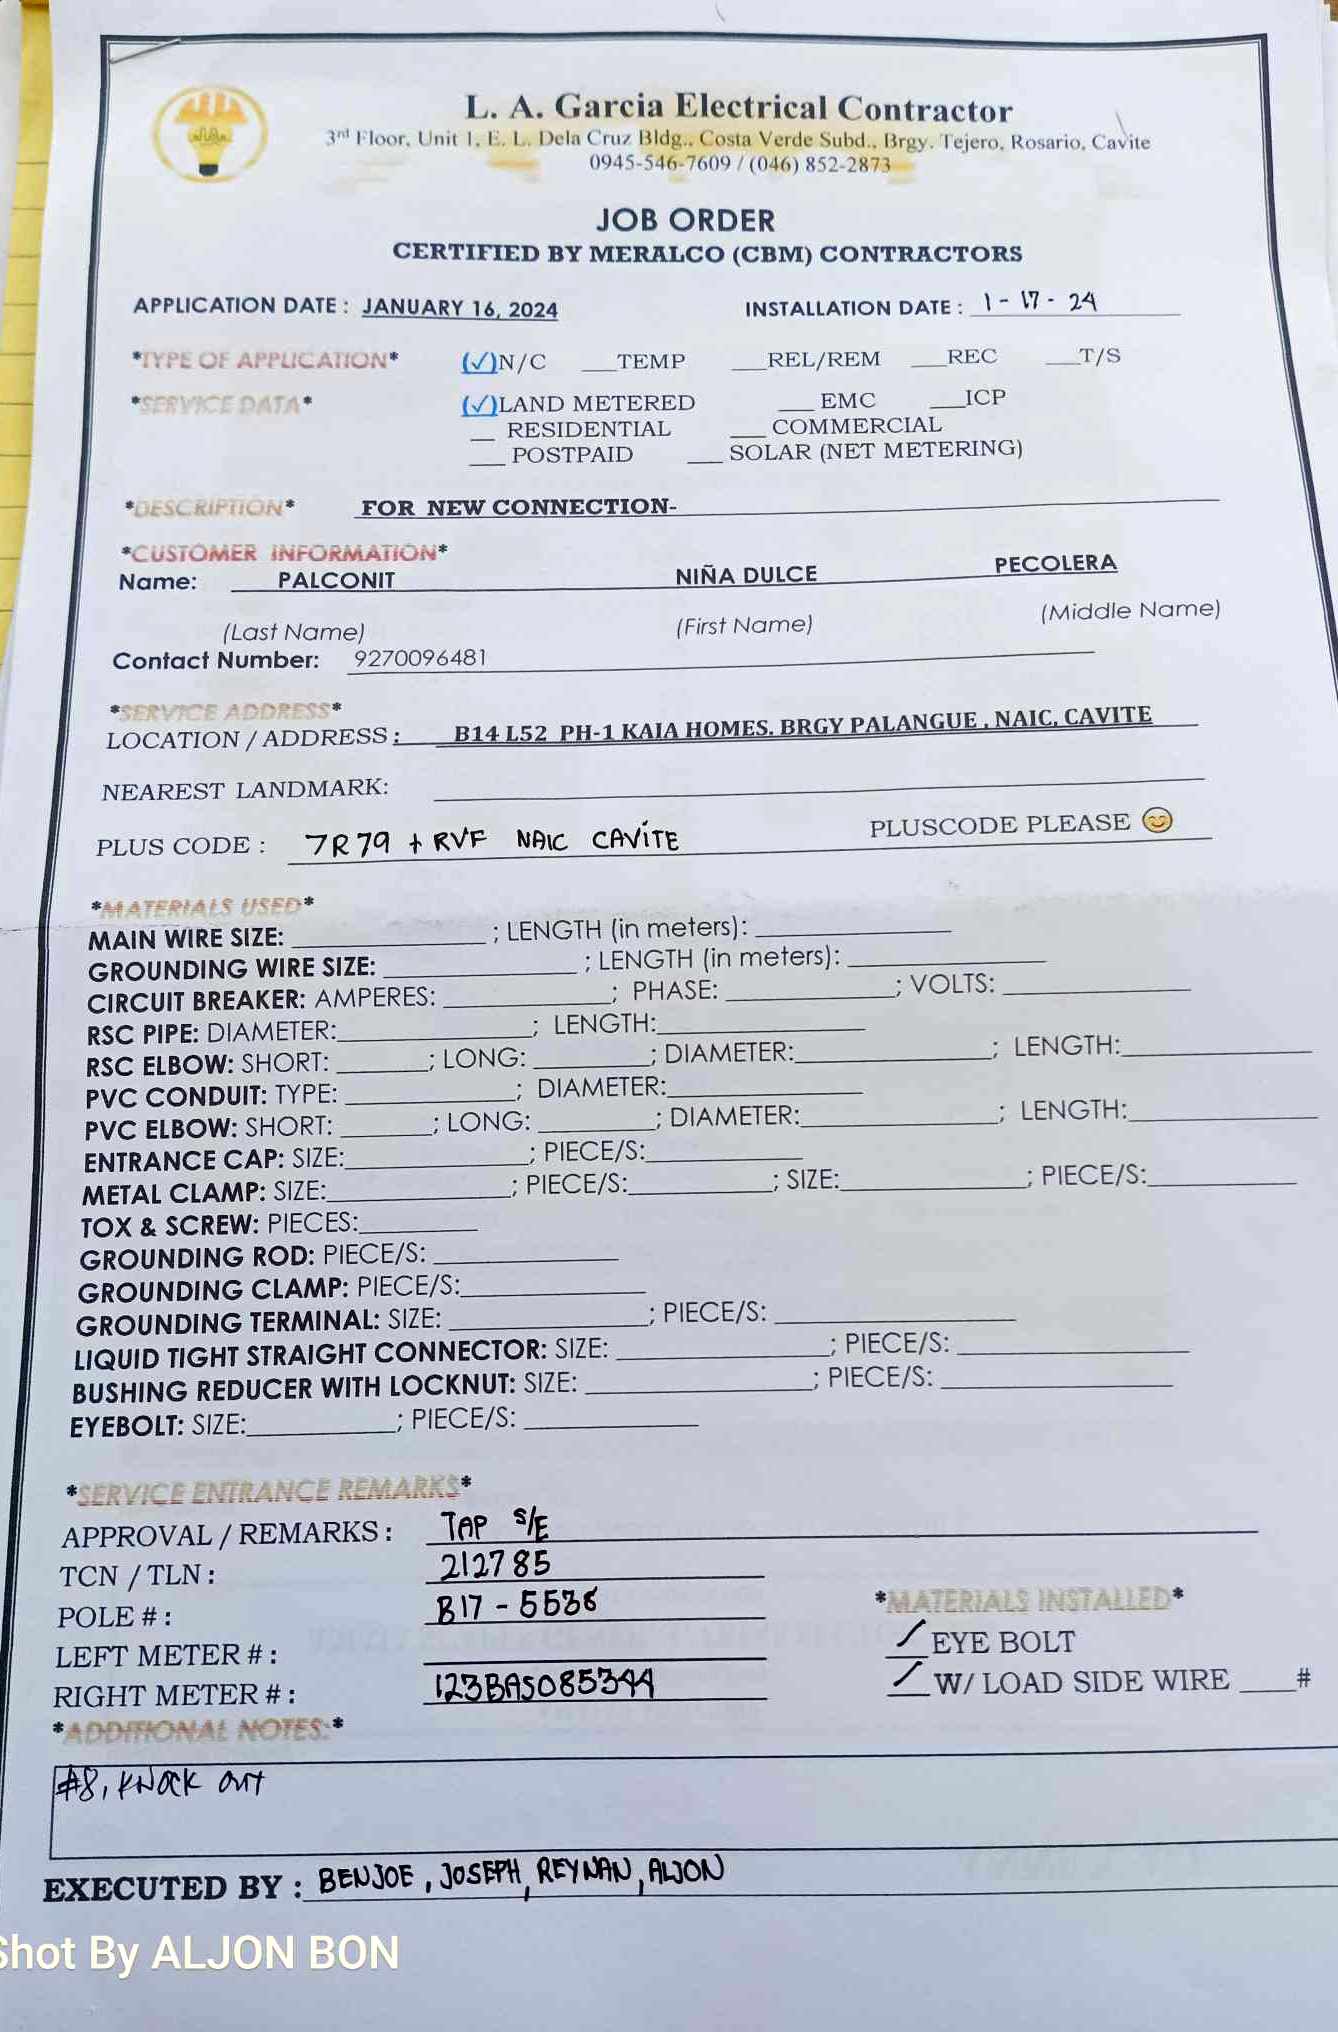 L. A. Garcia Electrical Contractor
3rd Floor, Unit 1, E. L. Dela Cruz Bldg., Costa Verde Subd., Brgy. Tejero, Rosario, Cavite
0945-546-7609 / (046) 852-2873
JOB ORDER
CERTIFIED BY MERALCO (CBM) CONTRACTORS
APPLICATION DATE : JANUARY 16, 2024 INSTALLATION DATE : 1 - 17 - 24
*TYPE OF APPLICATION* (✓)N/C ___TEMP ___REL/REM ___REC ___T/S
*SERVICE DATA* (✓)LAND METERED ___ EMC ___ICP
__ RESIDENTIAL ___ COMMERCIAL
___ POSTPAID ___ SOLAR (NET METERING)
*DESCRIPTION* FOR NEW CONNECTION-
*CUSTOMER INFORMATION*
Name: PALCONIT NIÑA DULCE PECOLERA
(Last Name) (First Name) (Middle Name)
Contact Number: 9270096481
*SERVICE ADDRESS*
LOCATION / ADDRESS : B14 L52 PH-1 KAIA HOMES. BRGY PALANGUE , NAIC, CAVITE
NEAREST LANDMARK:
PLUS CODE : 7R79 + RVF NAIC CAVITE PLUSCODE PLEASE 😊
*MATERIALS USED*
MAIN WIRE SIZE: ____________ ; LENGTH (in meters): ____________
GROUNDING WIRE SIZE: ____________ ; LENGTH (in meters): ____________
CIRCUIT BREAKER: AMPERES: ____________; PHASE: ____________; VOLTS: ____________
RSC PIPE: DIAMETER:____________; LENGTH:____________
RSC ELBOW: SHORT: ______; LONG: ______; DIAMETER:____________; LENGTH:____________
PVC CONDUIT: TYPE: ____________; DIAMETER:____________
PVC ELBOW: SHORT: ______; LONG: ______; DIAMETER:____________; LENGTH:____________
ENTRANCE CAP: SIZE:____________; PIECE/S:____________
METAL CLAMP: SIZE:____________; PIECE/S:____________; SIZE:____________; PIECE/S:____________
TOX & SCREW: PIECES:________
GROUNDING ROD: PIECE/S: ____________
GROUNDING CLAMP: PIECE/S:____________
GROUNDING TERMINAL: SIZE: ____________; PIECE/S: ____________
LIQUID TIGHT STRAIGHT CONNECTOR: SIZE: ____________; PIECE/S: ____________
BUSHING REDUCER WITH LOCKNUT: SIZE: ____________; PIECE/S: ____________
EYEBOLT: SIZE:__________; PIECE/S: ____________
*SERVICE ENTRANCE REMARKS*
APPROVAL / REMARKS : TAP S/E
TCN / TLN : 212785
POLE # : B17 - 5536 *MATERIALS INSTALLED*
LEFT METER # : / EYE BOLT
RIGHT METER # : 123BAS085344 / W/ LOAD SIDE WIRE ____#
*ADDITIONAL NOTES:*
#8, KNOCK OUT
EXECUTED BY : BENJOE, JOSEPH, REYNAN, ALJON
Shot By ALJON BON